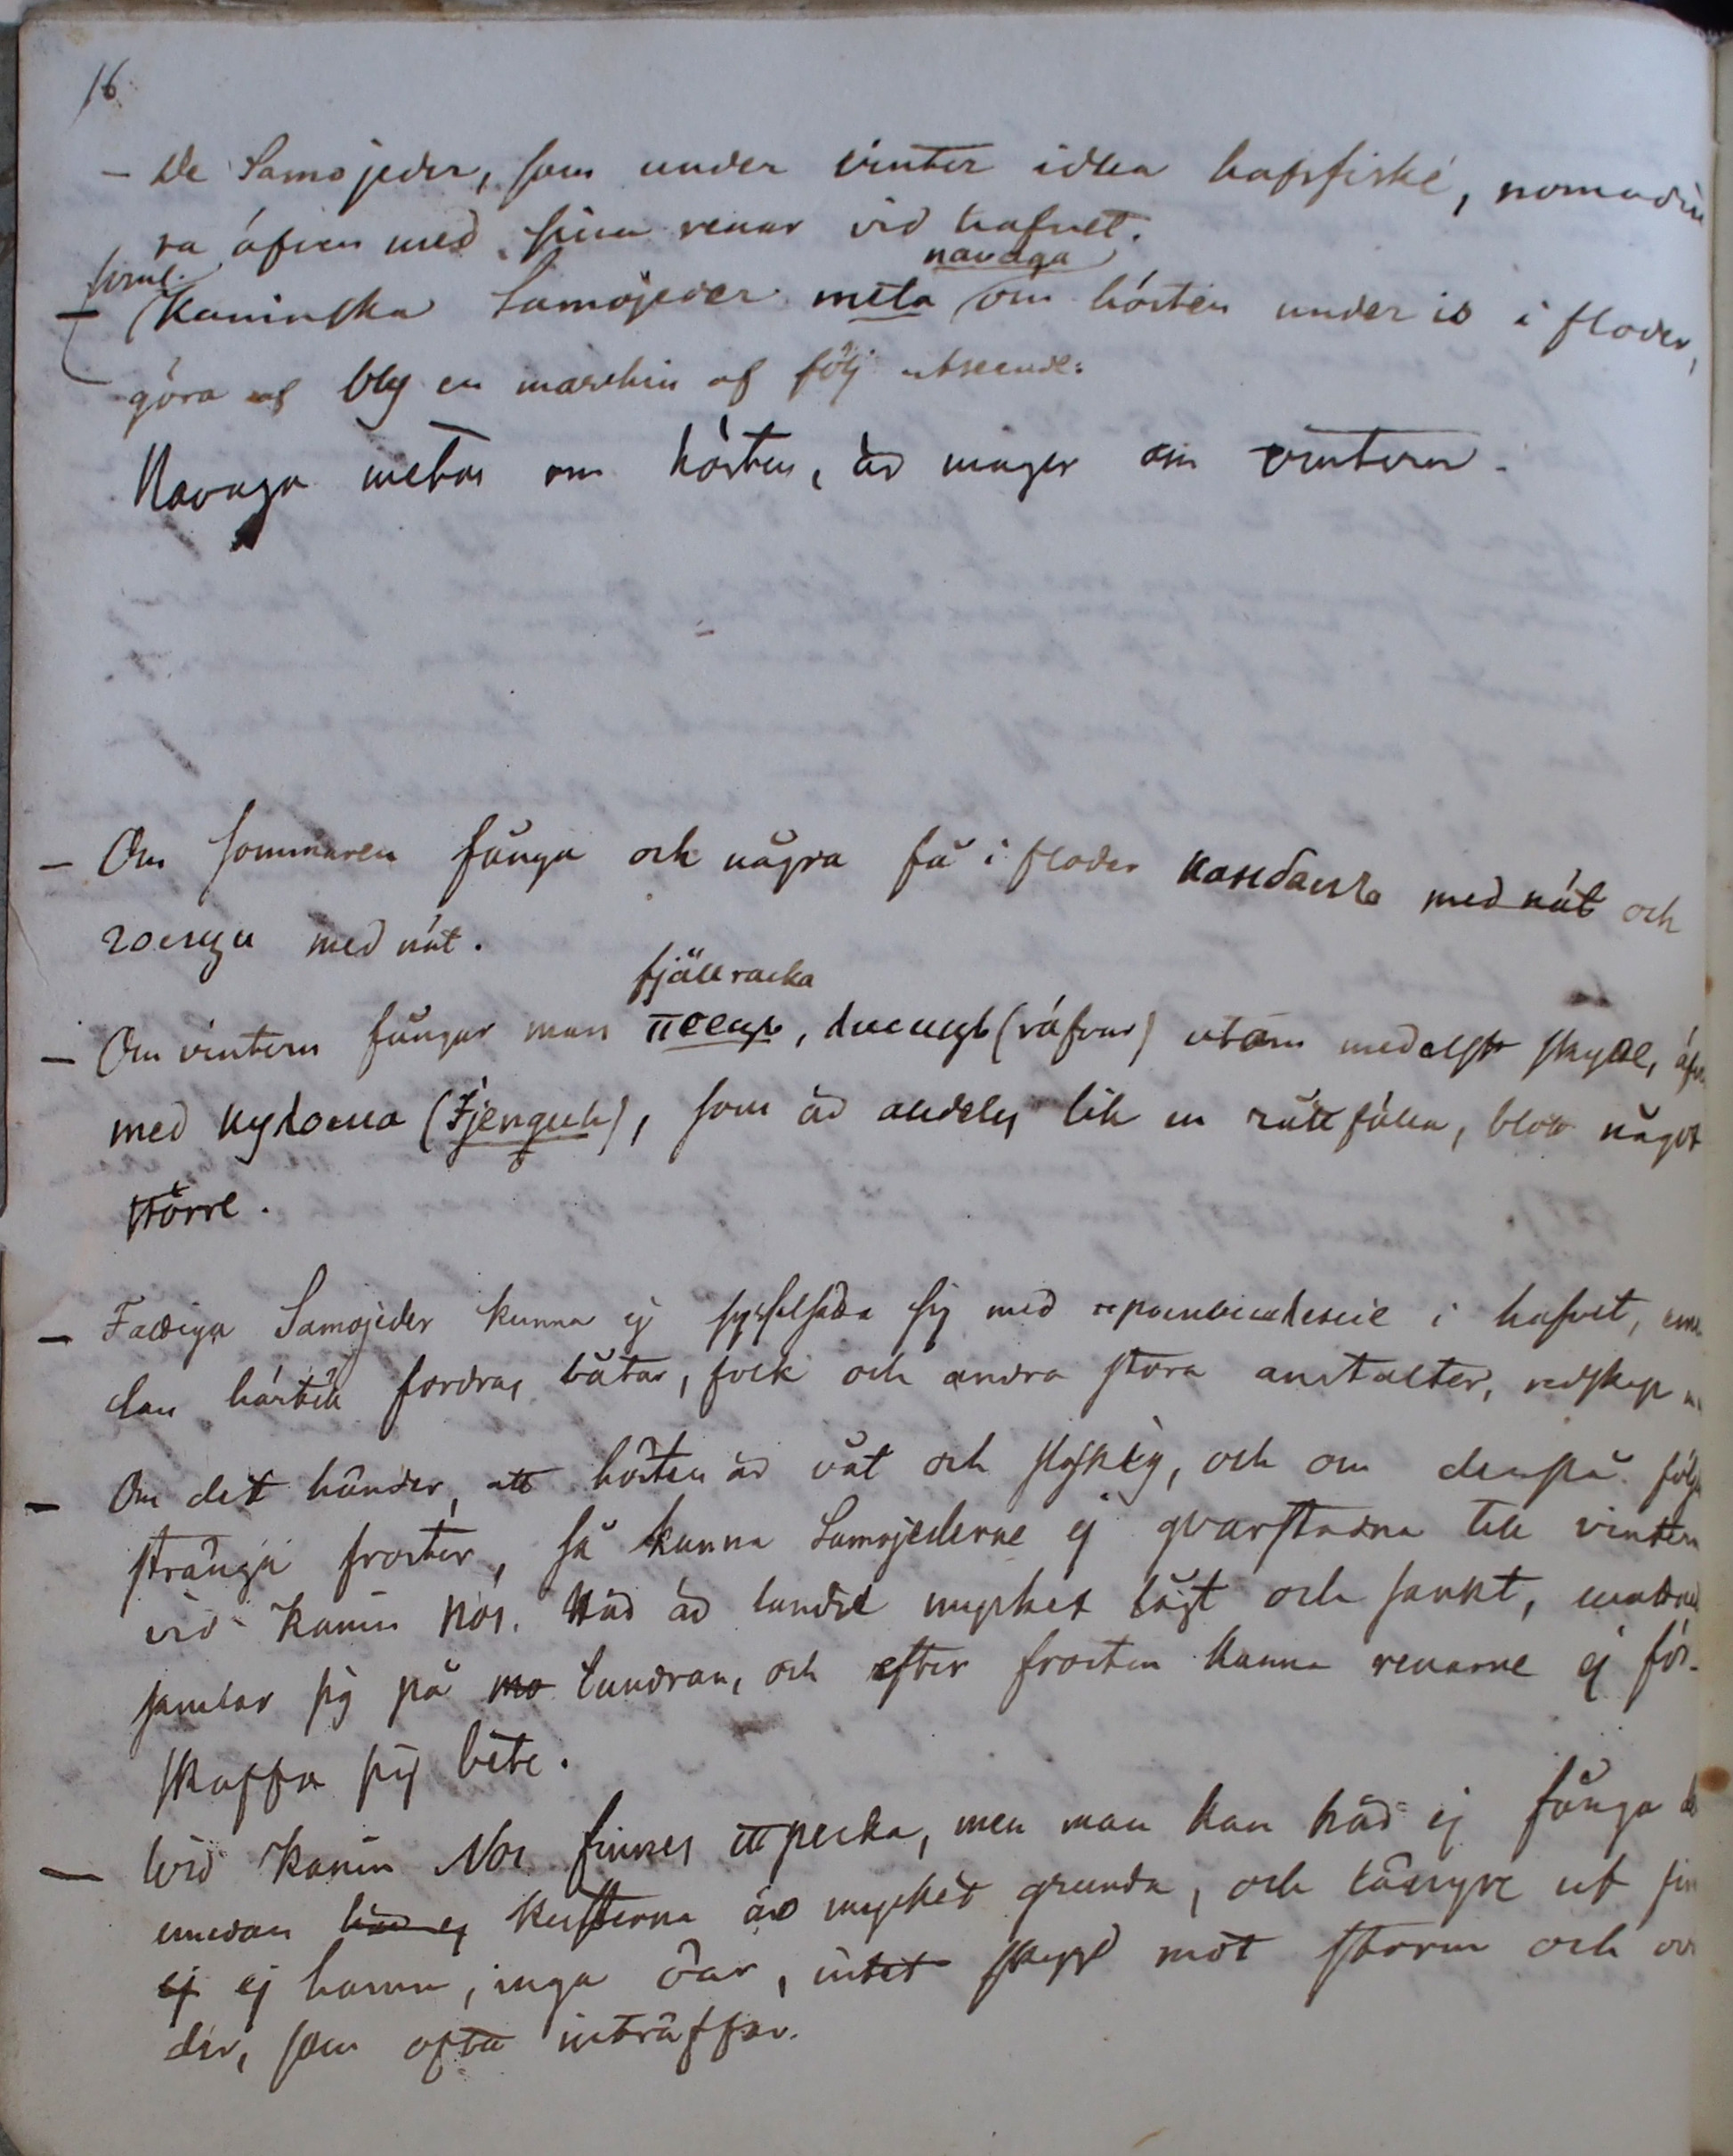 16
– De Samojeder, som under vinter idka hafsfiske, nomadise
ra äfven med sina renar vid hafvet.
navaga
– Kaninska Samojeder meta om hösten under is i floder,
göra af bly en maschin af följ utseende:
Navaga metas om hösten, är mager om vintern.
– Om sommaren fånga och några få i floder med nät och
med nät.
fjällracka
– Om vintern fångar man песцы, (räfvar) utom medelst skytte, äfv
med кулома (Fjenguh), som är alldeles lik en råttfälla, blott något
större.
– Fattiga Samojeder kunna ej sysselsätta sig med i hafvet, eme
dan härtill fordras båtar, folk och andra stora anstalter, redskap
– Om det händer, att hösten är våt och slaskig, och om derpå följa
stränga froster, så kunna Samojederne ej qvarstadna till vintern
vid Kanin Nos. Här är landet mycket lågt och sankt, vattnet
samlar sig på mo tundran, och efter frosten kunna renarne ej för-
skaffa sig bete.
– Vid Kanin Nos finnes треска, men man kan här ej fånga de
emedan här ej kusterna äro mycket grunda, och längre ut fin
ej ej hamn, inga öar, intet skygd mot storm och ov
der, som ofta inträffar.